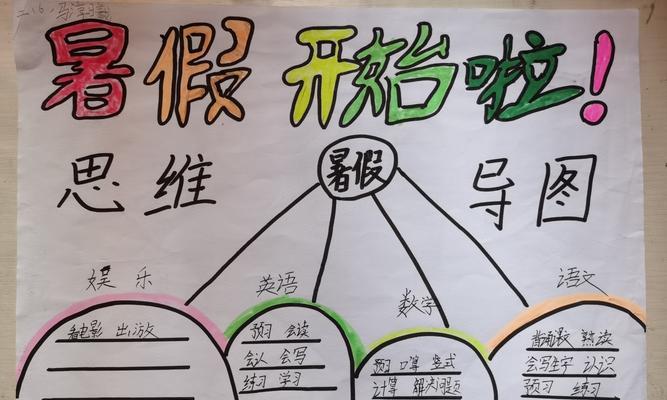 二、6、
暑假开始啦!
思维 暑假 导图
娱乐 英语 数学 语文
看电影 出游
预习 会读
会认 会写
练习 学习
预习 口算 竖式
计算 解决问题
普通话 熟读
会写生字 认识
预习 练习